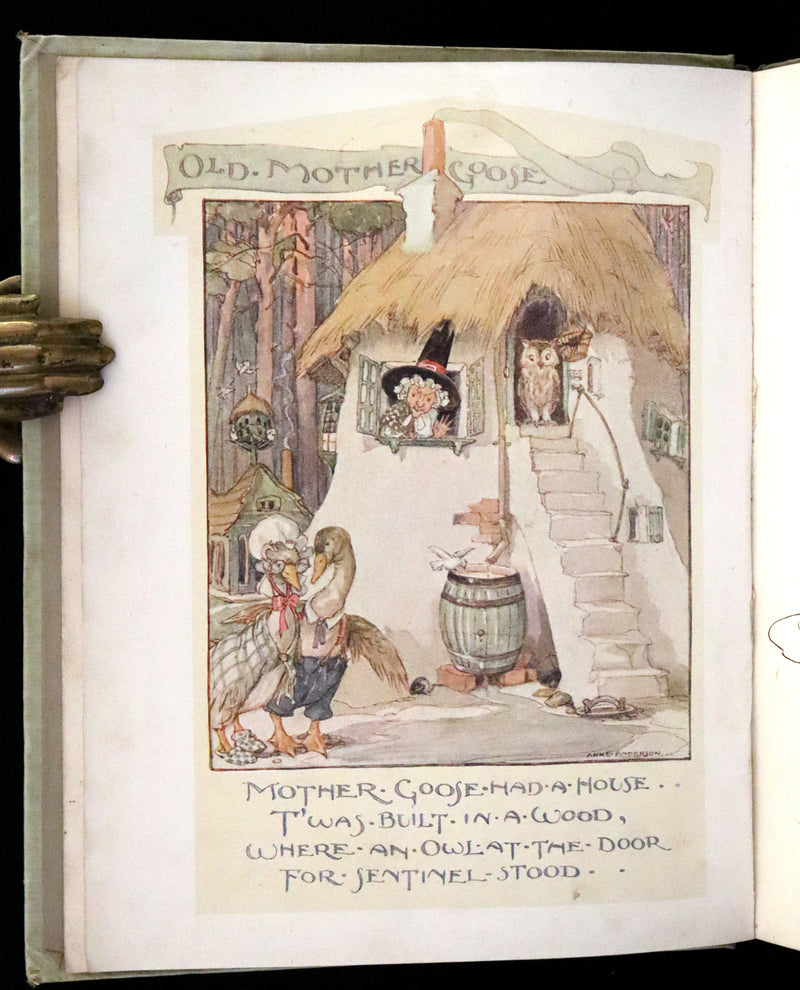 OLD. MOTHER GOOSE
ANNE ANDERSON
MOTHER· GOOSE·HAD·A·HOUSE . .
T'WAS·BUILT·IN·A·WOOD,
WHERE·AN·OWL·AT·THE·DOOR
FOR·SENTINEL·STOOD· ·